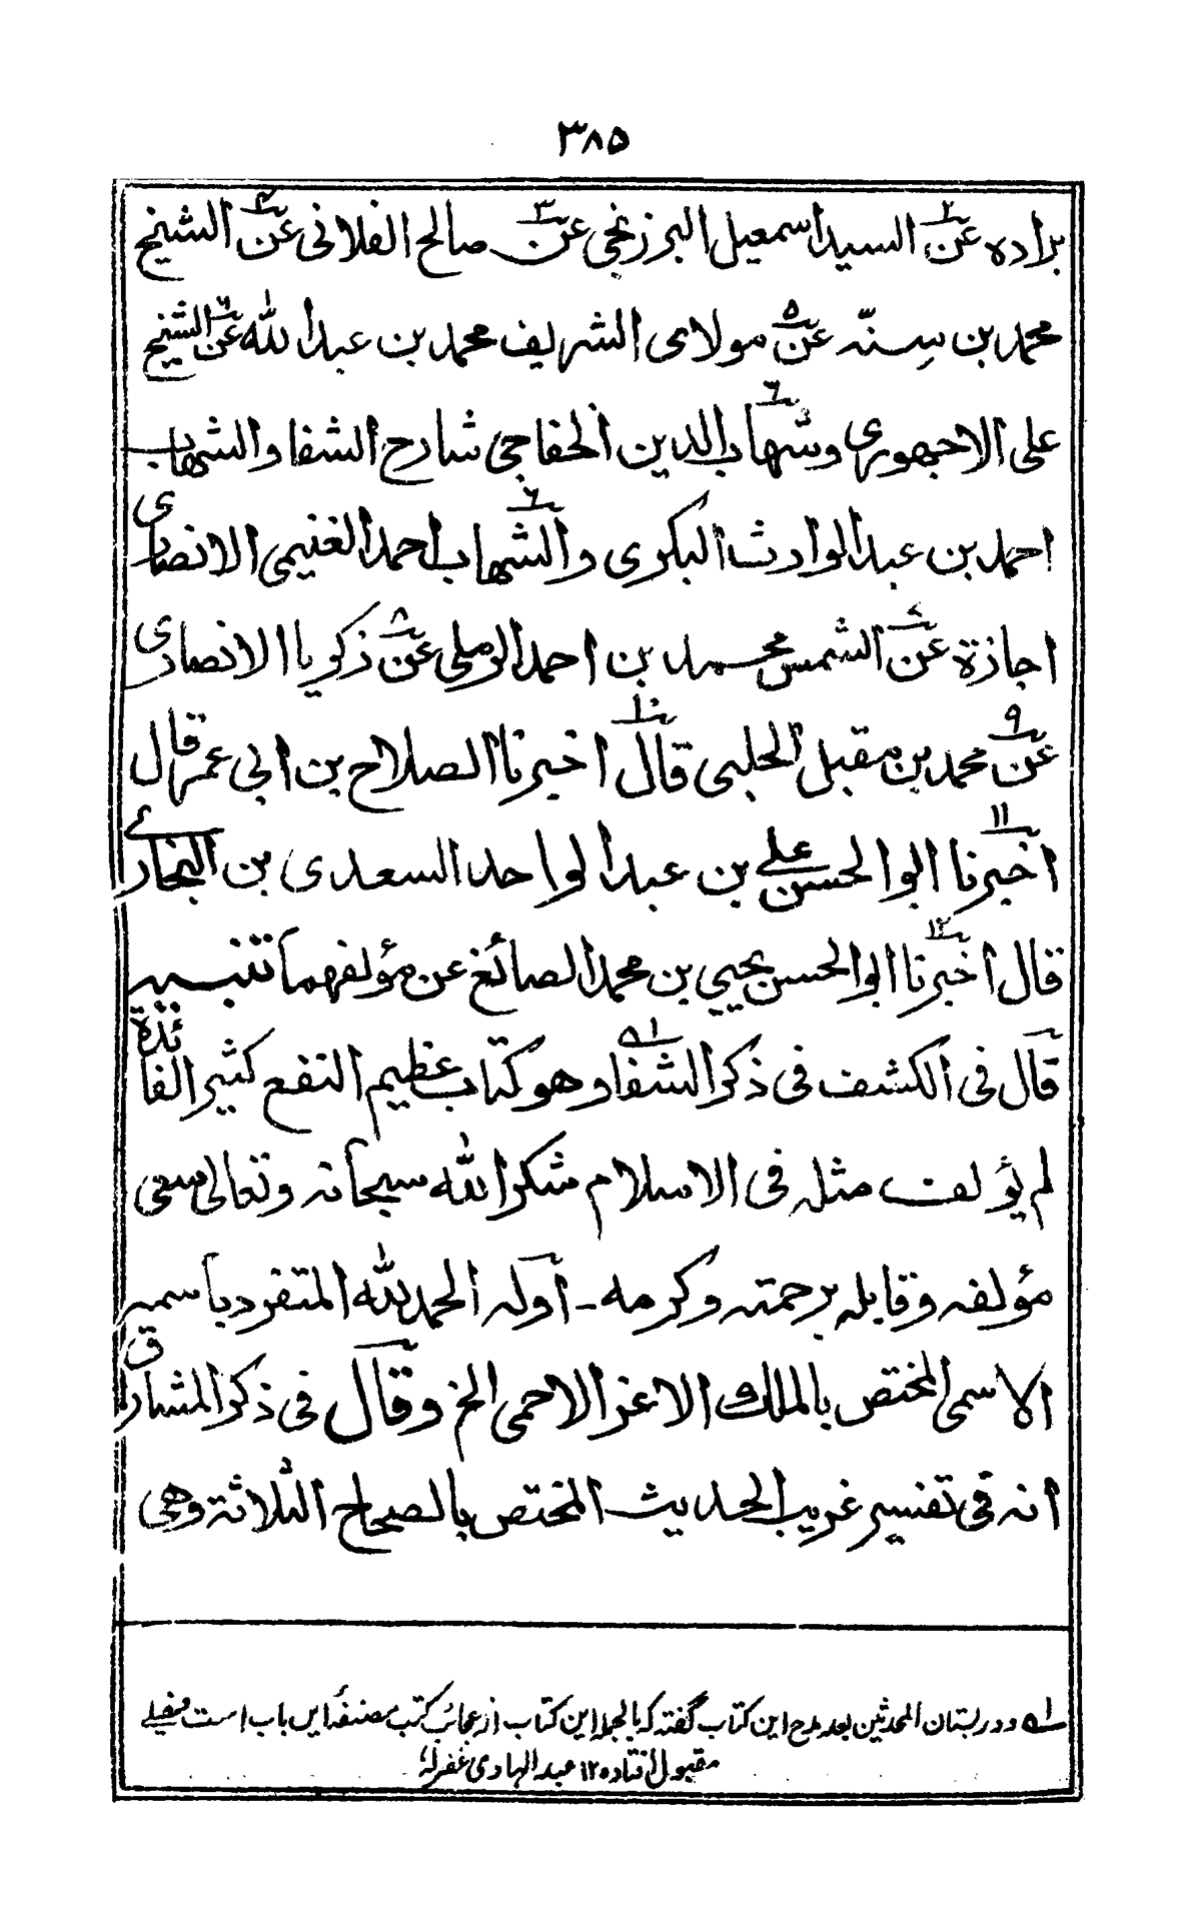 ٣٨٥
برادہ عن السید اسمعیل البرزنجی عن صالح الفلانی عن الشیخ
محمد بن سِنّہ عن مولای الشریف محمد بن عبد اللہ عن الشیخ
علی الاجہوری وشہاب الدین الخفاجی شارح الشفا والشہاب
احمد بن عبد الوارث البکری والشہاب احمد الغنیمی الانصاری
اجازة عن الشمس محمد بن احمد الرملی عن زکریا الانصاری
عن محمد بن مقبل الحلبی قال اخبرنا الصلاح بن ابی عمر قال
اخبرنا ابو الحسن علی بن عبد الواحد السعدی بن البخاری
قال اخبرنا ابو الحسن یحیی بن محمد الصائغ عن مؤلفہما تنبیہ
قال فی الکشف فی ذکر الشفا وھو کتاب عظیم النفع کثیر الفائدة
لم یؤلف مثلہ فی الاسلام شکر اللہ سبحانہ وتعالی سعی
مؤلفہ وقابلہ برحمتہ وکرمہ - اولہ الحمد للہ المتفرد باسمہ
الاسمی المختص بالملک الاعز الاحمی الخ وقال فی ذکر المشارق
انہ فی تفسیر غریب الحدیث المختص بالصحاح الثلاثة وھی
١ ودر بستان المحدثین بعد مدح این کتاب گفتہ کہ بالجملہ این کتاب از عجائب کتب مصنفۂ این باب است خیلے
مقبول افتادہ ١٢ عبد الہادی غفرلہ